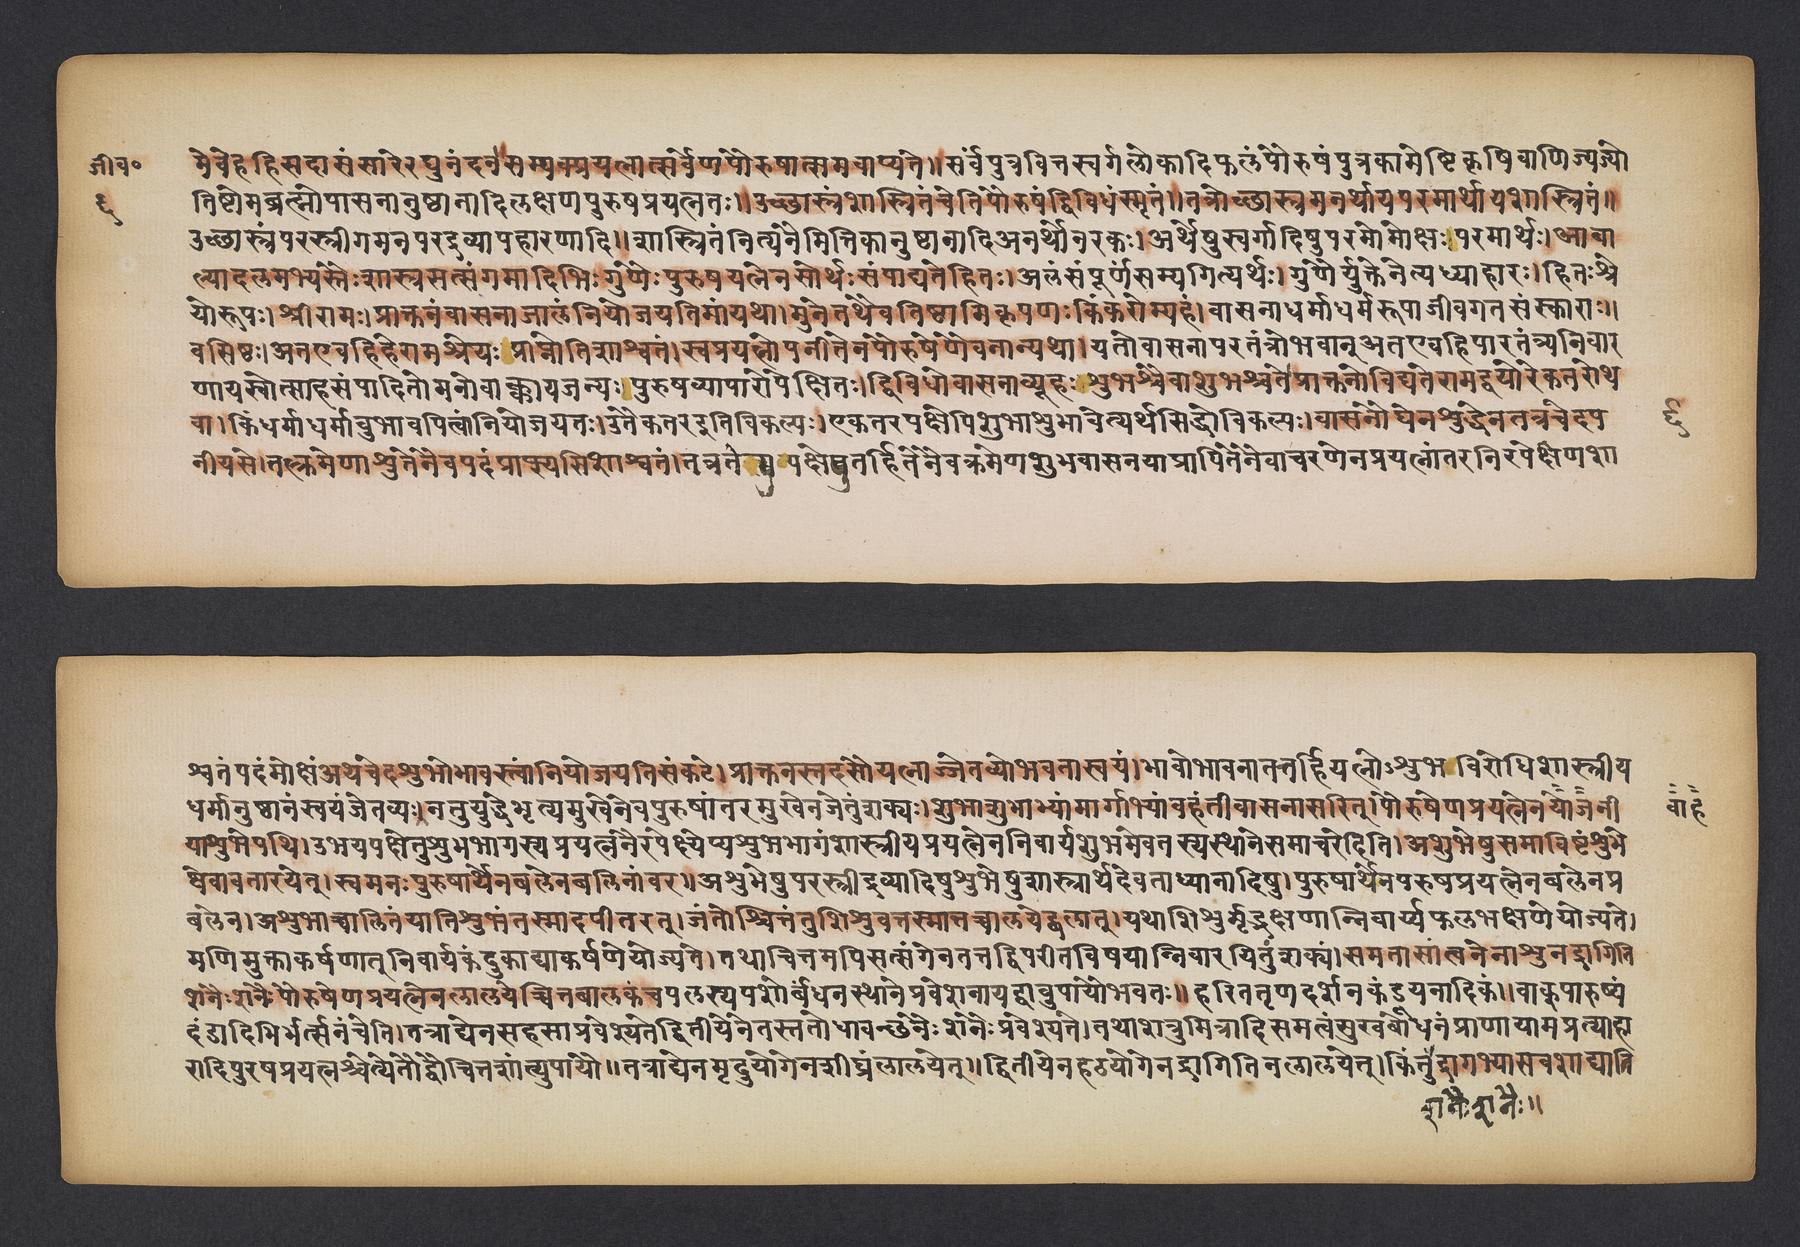 जीव०
६
मेवेहहिसदासंसारेरघुनंदनसम्यक्प्रयत्नात्सर्वेणपौरुषात्समवाप्यते॥सर्वंपुत्रवित्तस्वर्गलोकादिफलंपौरुषंपुत्रकामेष्टिकृषिवाणिज्यज्यो
तिष्टोमब्रह्मोपासनानुष्ठानादिलक्षणपुरुषप्रयत्नतः॥उच्छास्त्रंशास्त्रितंचेतिपौरुषंद्विविधंस्मृतं॥तत्रोच्छास्त्रमनर्थायपरमार्थायशास्त्रितं॥
उच्छास्त्रंपरस्त्रीगमनपरद्रव्यापहारणादि॥शास्त्रितंनित्यनैमित्तिकानुष्ठानादिअनर्थोनरकः।अर्थेषुस्वर्गादिषुपरमोमोक्षःपरमार्थः।आबा
ल्यादलमभ्यस्तैःशास्त्रसत्संगमादिभिःगुणैःपुरुषयत्नेनसोर्थःसंपाद्यतेहितः।अलंसंपूर्णसम्यगित्यर्थः।गुणैर्युक्तेनेत्यध्याहारः।हितःश्रे
योरूपः।श्रीरामः।प्राक्तनंवासनाजालंनियोजयतिमांयथा।मुनेतथैवतिष्ठामिकृपणःकिंकरोम्यहं।वासनाधर्माधर्मरूपाजीवगतसंस्काराः॥
वसिष्ठः।अतएवहिहेरामश्रेयःप्राप्नोतिशाश्वतं।स्वप्रयत्नोपनीतेनपौरुषेणैवनान्यथा।यतोवासनापरतंत्रोभवान्अतएवहिपारतंत्र्यनिवार
णायस्वोत्साहसंपादितोमनोवाक्कायजन्यःपुरुषव्यापारोपेक्षितः।द्विविधोवासनाव्यूहःशुभश्चैवाशुभश्चतेप्राक्तनोविद्यतेरामद्वयोरेकतरोथ
वा।किंधर्माधर्मावुभावपित्वांनियोजयतः।उतैकतरइतिविकल्पः।एकतरपक्षेपिशुभाशुभावेत्यर्थसिद्धोविकल्पः।वासनौघेनशुद्धेनतत्रचेदप
नीयसे।तत्क्रमेणाशुतेनैवपदंप्राप्स्यसिशाश्वतं।तत्रतेषुपक्षेषुतर्हितेनैवक्रमेणशुभवासनयाप्रापितेनैवाचरणेनप्रयत्नांतरनिरपेक्षेणशा
६
श्वतंपदंमोक्षंअथचेदशुभोभावस्त्वांनियोजयतिसंकटे।प्राक्तनस्तदसौयत्नाज्जेतव्योभवतास्वयं।भावोभावनातत्तर्हियत्नोऽशुभविरोधिशास्त्रीय
धर्मानुष्ठानंस्वयंजेतव्यः।नतुयुद्धेभृत्यमुखेनेवपुरुषांतरमुखेनजेतुंशक्यः।शुभाशुभाभ्यांमार्गाभ्यांवहंतीवासनासरित्।पौरुषेणप्रयत्नेनयोजनी
वाहे
याशुभेपथि।उभयपक्षेतुशुभभागस्यप्रयत्ननैरपेक्ष्येप्यशुभभागंशास्त्रीयप्रयत्नेननिवार्यशुभमेवतस्यस्थानेसमाचरेदिति।अशुभेषुसमाविष्टंशुभे
ष्वेवावतारयेत्।स्वमनःपुरुषार्थेनबलेनबलिनांवर॥अशुभेषुपरस्त्रीद्रव्यादिषुशुभेषुशास्त्रार्थदेवताध्यानादिषु।पुरुषार्थेनपरुषप्रयत्नेनबलेनप्र
बलेन।अशुभाच्चालितंयातिशुभंतस्मादपीतरत्।जंतोश्चित्तंतुशिशुवत्तस्मात्तच्चालयेद्बलात्।यथाशिशुर्मृद्भक्षणान्निवार्य्यफलभक्षणेयोज्यते।
मणिमुक्ताकर्षणात्निवार्यकंदुकाद्याकर्षणेयोज्यते।तथाचित्तमपिसत्संगेनतत्तद्विपरीतविषयान्निवारयितुंशक्यं।समतासांत्वनेनाशुनद्रागिति
शनैःशनैःपौरुषेणप्रयत्नेनलालयेच्चित्तबालकंचपलस्यपशोर्बंधनस्थानेप्रवेशनायद्वावुपायौभवतः॥हरिततृणदर्शनकंडूयनादिकं॥वाक्पारुष्यं
दंडादिभिर्भर्त्सनंचेति।तत्राद्येनसहसाप्रवेश्यतेद्वितीयेनेतस्ततोधावन्छनैःशनैःप्रवेश्यते।तथाशत्रुमित्रादिसमत्वंसुखबोधनंप्राणायामप्रत्याहा
रादिपुरषप्रयत्नश्चेत्येतौद्वौचित्तशांत्युपायौ॥तत्राद्येनमृदुयोगेनशीघ्रंलालयेत्॥द्वितीयेनहठयोगेनद्रागितिनलालयेत्।किंतुद्रागभ्यासवशाद्याति
शनैःशनैः॥